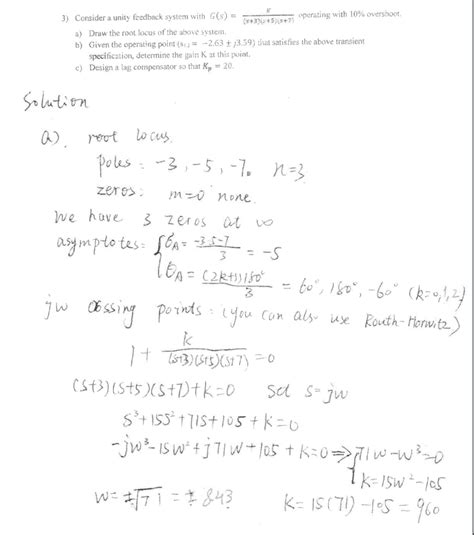 3) Consider a unity feedback system with G(s) = K / (s+3)(s+5)(s+7) operating with 10% overshoot.
a) Draw the root locus of the above system.
b) Given the operating point (s₁,₂ = −2.63 ± j3.59) that satisfies the above transient
specification, determine the gain K at this point.
c) Design a lag compensator so that Kₚ = 20.
Solution
a). root locus.
poles: -3, -5, -7. n=3
zeros: m=0 none.
We have 3 zeros at ∞
asymptotes: { σA = -3-5-7 / 3 = -5
θA = (2k+1)180° / 3 = 60°, 180°, -60° (k=0,1,2)
jw crossing points: (you can als use Routh-Horwitz)
1 + k / (s+3)(s+5)(s+7) = 0
(s+3)(s+5)(s+7)+k=0 Set s=jw
s³+15s²+71s+105+k=0
-jw³-15w²+j71w+105+k=0 ⇒ { 71w-w³=0
k=15w²-105
w= ±√71 = ± 8.43 k= 15(71)-105 = 960